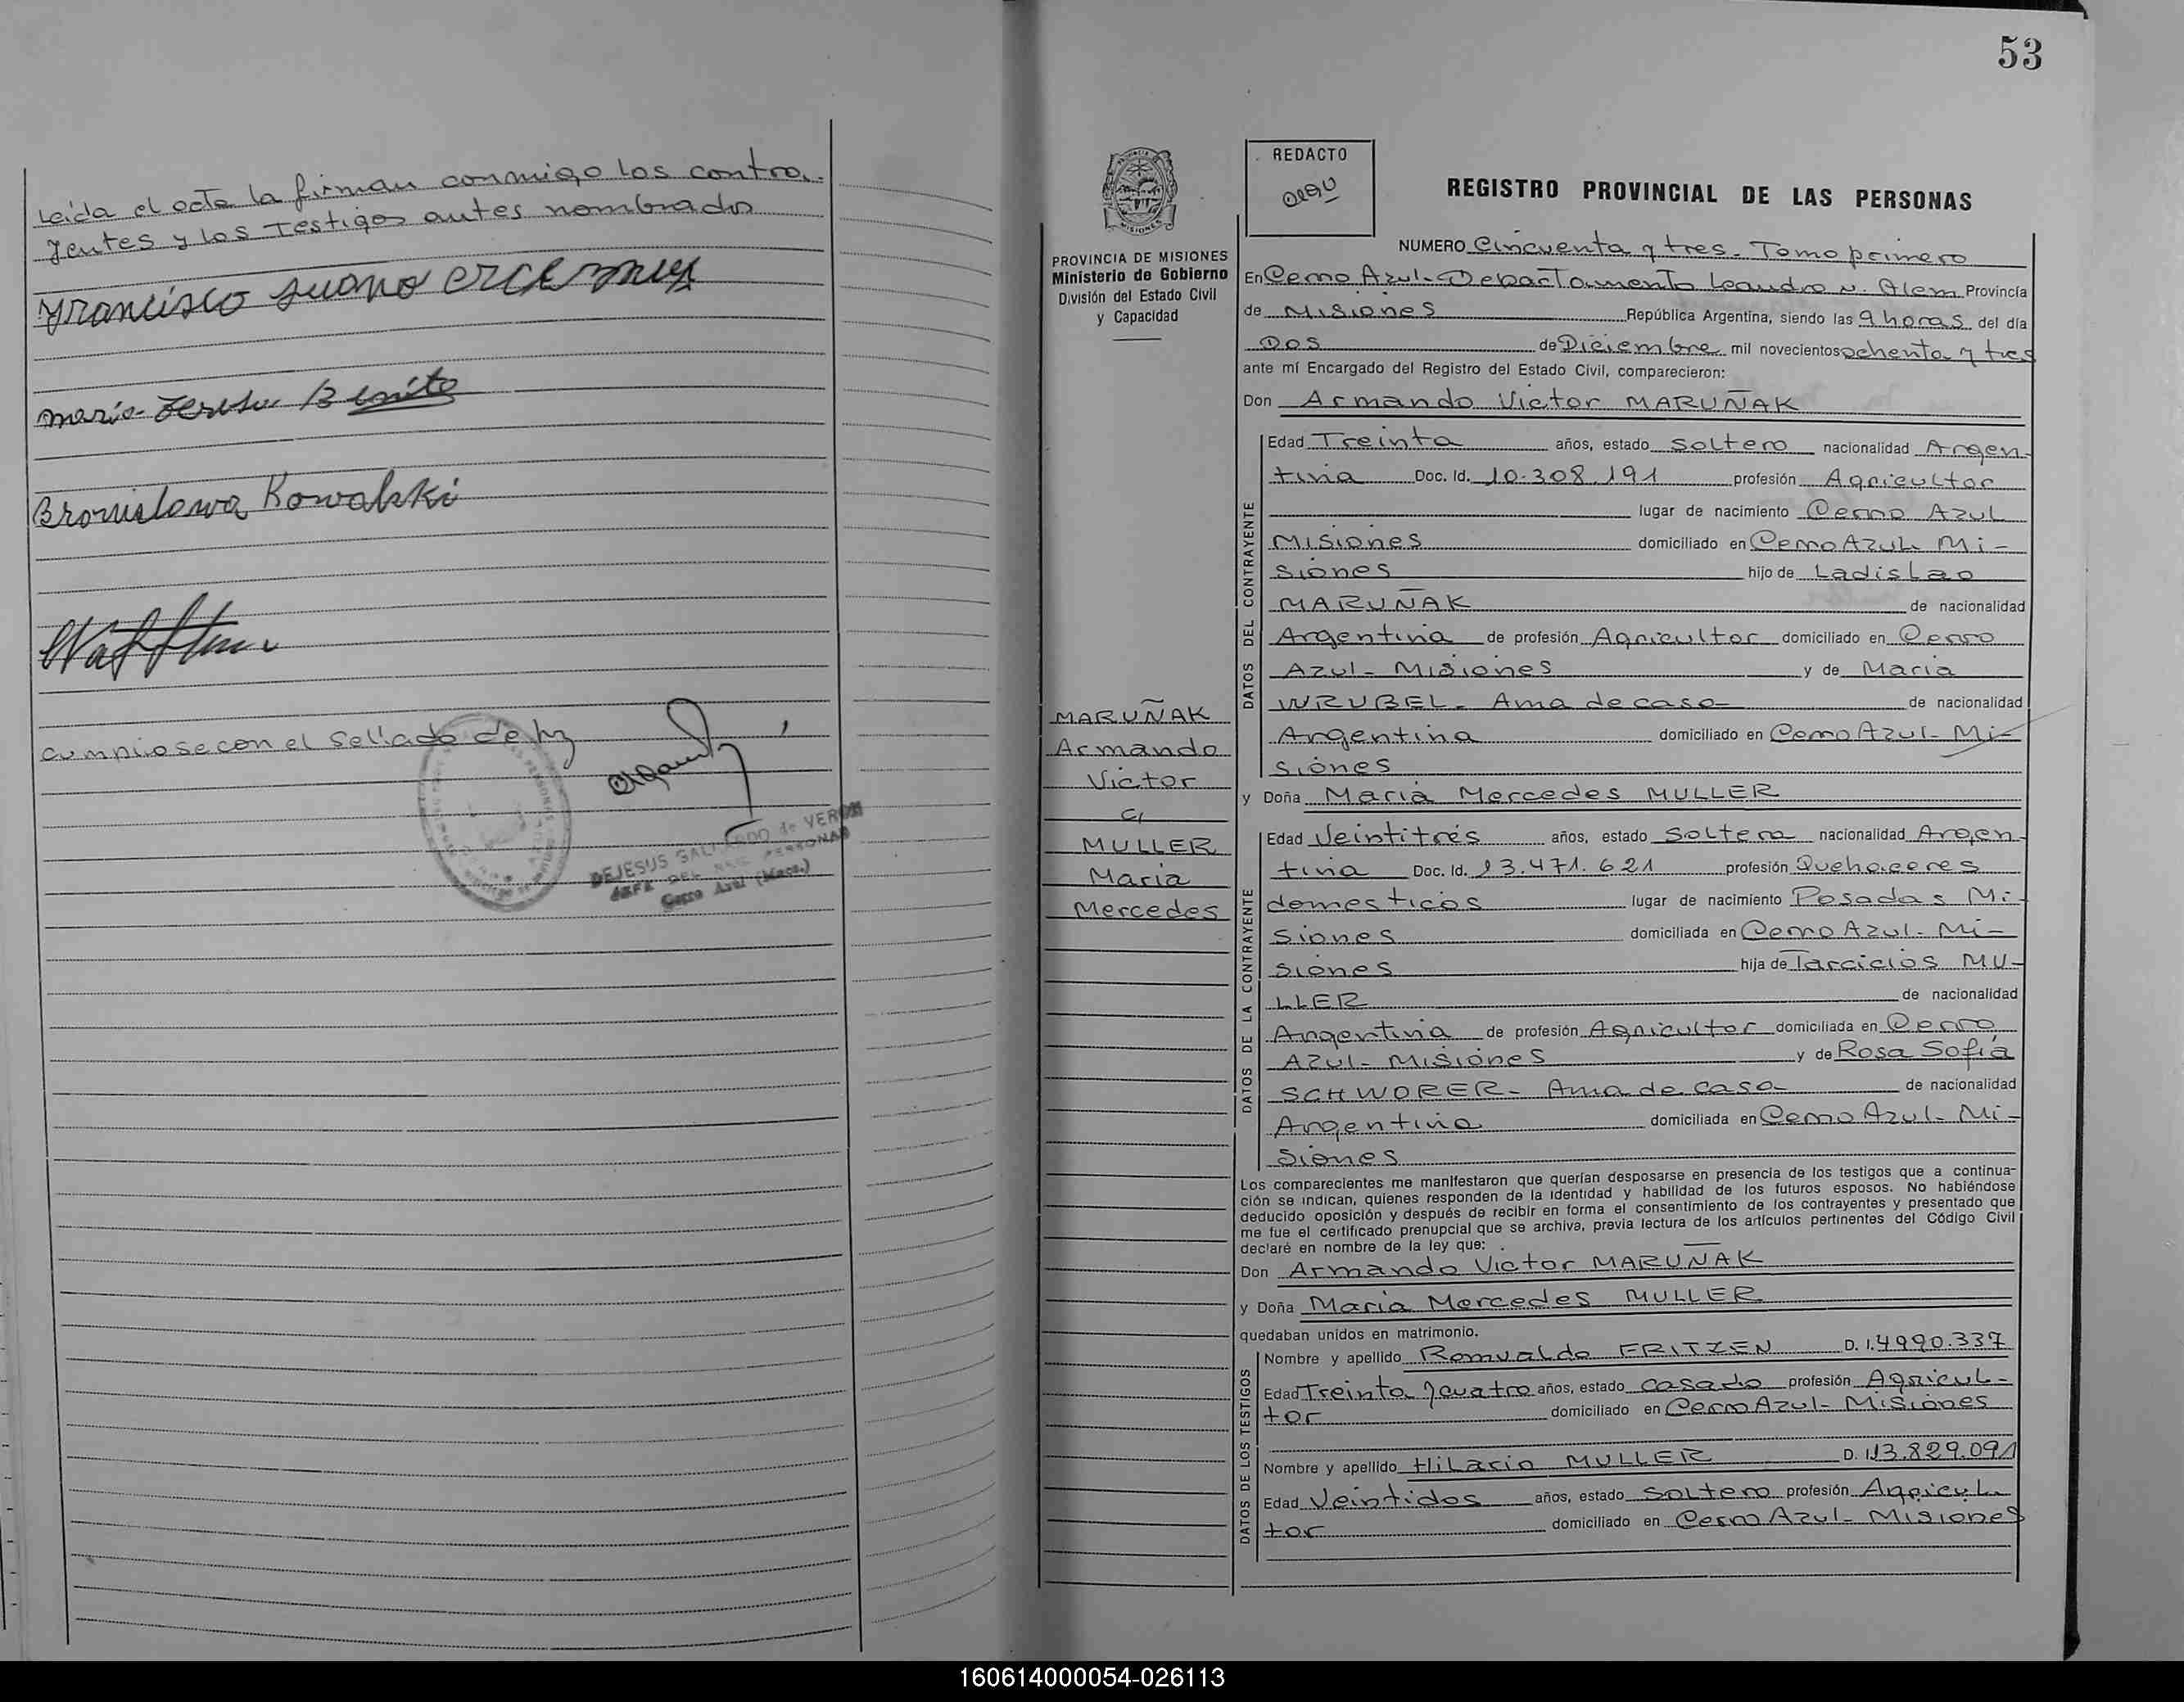 Leida el acta la firman conmigo los contra-
yentes y los Testigos antes nombrados
Francisco
Maria Teresa Benito
Bronislawa Kowalski
Cumpliose con el Sellado de ley
DEJESUS GALEANO de VERON
JEFE DEL REG. PERSONAS
Cerro Azul (Mnes.)
53
PROVINCIA DE MISIONES
Ministerio de Gobierno
División del Estado Civil
y Capacidad
MARUÑAK
Armando
Victor
c/
MULLER
Maria
Mercedes
REDACTO
REGISTRO PROVINCIAL DE LAS PERSONAS
NUMERO Cincuenta y tres. Tomo primero
En Cerro Azul- Departamento Leandro N. Alem Provincia
de Misiones República Argentina, siendo las 9 horas del día
Dos de Diciembre mil novecientos ochenta y tres
ante mí Encargado del Registro del Estado Civil, comparecieron:
Don Armando Victor MARUÑAK
DATOS DEL CONTRAYENTE
Edad Treinta años, estado Soltero nacionalidad Argen-
tina Doc. Id. 10.308.191 profesión Agricultor
lugar de nacimiento Cerro Azul
Misiones domiciliado en Cerro Azul- Mi-
siones hijo de Ladislao
MARUÑAK de nacionalidad
Argentina de profesión Agricultor domiciliado en Cerro
Azul- Misiones y de Maria
WRUBEL- Ama de casa de nacionalidad
Argentina domiciliado en Cerro Azul- Mi-
siones
y Doña Maria Mercedes MULLER
DATOS DE LA CONTRAYENTE
Edad Veintitrés años, estado Soltera nacionalidad Argen-
tina Doc. Id. 13.471.621 profesión Quehaceres
domesticos lugar de nacimiento Posadas Mi-
siones domiciliada en Cerro Azul- Mi-
siones hija de Tarcicios MU-
LLER de nacionalidad
Argentina de profesión Agricultor domiciliada en Cerro
Azul- Misiones y de Rosa Sofía
SCHWORER- Ama de casa- de nacionalidad
Argentina domiciliada en Cerro Azul- Mi-
siones
Los comparecientes me manifestaron que querían desposarse en presencia de los testigos que a continua-
ción se indican, quienes responden de la identidad y habilidad de los futuros esposos. No habiéndose
deducido oposición y después de recibir en forma el consentimiento de los contrayentes y presentado que
me fue el certificado prenupcial que se archiva, previa lectura de los artículos pertinentes del Código Civil
declaré en nombre de la ley que:
Don Armando Victor MARUÑAK
y Doña Maria Mercedes MULLER
quedaban unidos en matrimonio.
DATOS DE LOS TESTIGOS
Nombre y apellido Romualdo FRITZEN D. I. 4990.337
Edad Treinta y cuatro años, estado casado profesión Agricul-
tor domiciliado en Cerro Azul- Misiones
Nombre y apellido Hilario MULLER D. I. 13.829.091
Edad Veintidos años, estado Soltero profesión Agricul-
tor domiciliado en Cerro Azul- Misiones
160614000054-026113